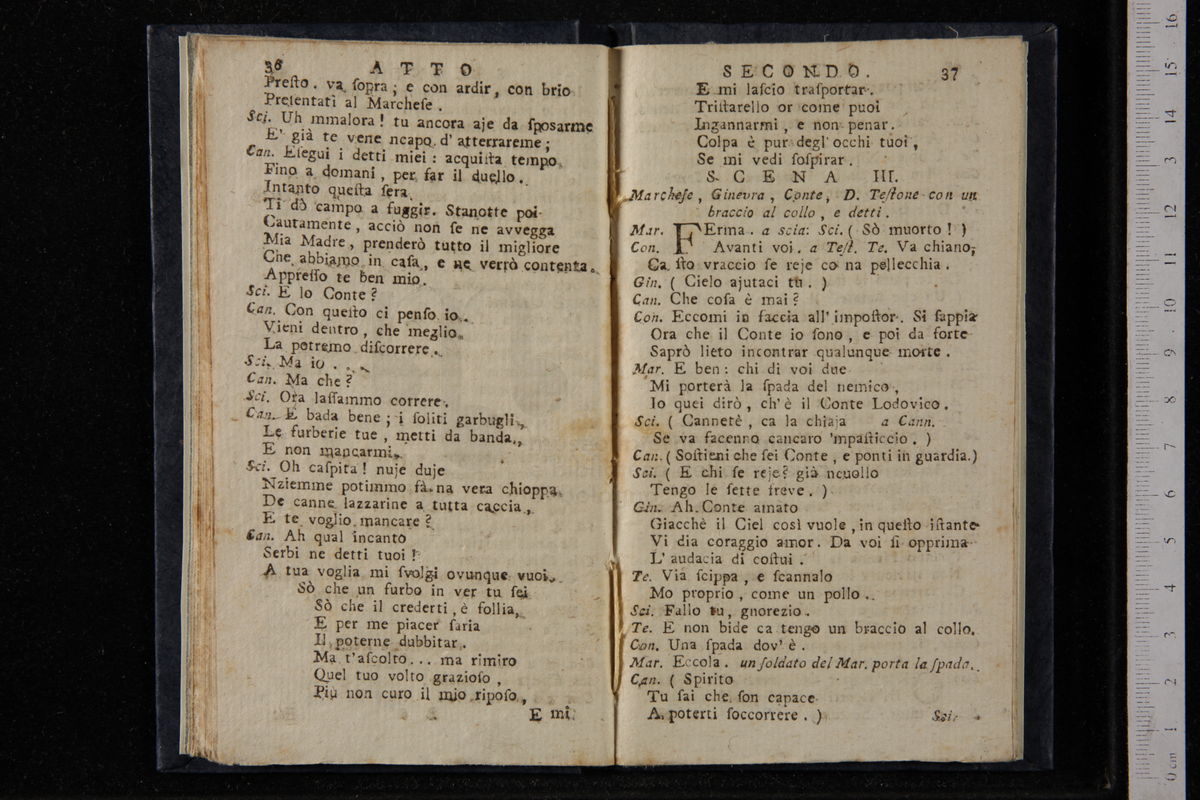 36 ATTO
Preſto. va ſopra; e con ardir, con brio
Preſentati al Marcheſe.
Sci. Uh mmalora! tu ancora aje da ſpoſarme
E' già te vene ncapo d'atterrareme;
Can. Eſegui i detti miei: acquiſta tempo
Fino a domani, per far il duello.
Intanto queſta ſera
Ti dò campo a fuggir. Stanotte poi
Cautamente, acciò non ſe ne avvegga
Mia Madre, prenderò tutto il migliore
Che abbiamo in caſa, e ne verrò contenta
Appreſſo te ben mio.
Sci. E lo Conte?
Can. Con queſto ci penſo io.
Vieni dentro, che meglio
La potremo diſcorrere.
Sci. Ma io ...
Can. Ma che?
Sci. Ora laſſammo correre.
Can. E bada bene; i ſoliti garbugli,
Le furberie tue, metti da banda,
E non mancarmi.
Sci. Oh caſpita! nuje duje
Nziemme potimmo fà na vera chioppa
De canne lazzarine a tutta caccia,
E te voglio mancare?
Can. Ah qual incanto
Serbi ne detti tuoi!
A tua voglia mi ſvolgi ovunque vuoi.
Sò che un furbo in ver tu ſei
Sò che il crederti, è follia,
E per me piacer ſaria
Il poterne dubbitar.
Ma t'aſcolto... ma rimiro
Quel tuo volto grazioſo,
Più non curo il mio ripoſo,
E mi
SECONDO. 37
E mi laſcio traſportar.
Triſtarello or come puoi
Ingannarmi, e non penar.
Colpa è pur degl'occhi tuoi,
Se mi vedi ſoſpirar.
SCENA III.
Marcheſe, Ginevra, Conte, D. Teſtone con un
braccio al collo, e detti.
Mar. FErma. a scia: Sci. ( Sò muorto! )
Con. Avanti voi. a Teſt. Te. Va chiano,
Ca ſto vraccio ſe reje co na pellecchia.
Gin. ( Cielo ajutaci tu. )
Can. Che coſa è mai?
Con. Eccomi in faccia all'impoſtor. Si ſappia
Ora che il Conte io ſono, e poi da forte
Saprò lieto incontrar qualunque morte.
Mar. E ben: chi di voi due
Mi porterà la ſpada del nemico,
Io quei dirò, ch'è il Conte Lodovico.
Sci. ( Cannetè, ca la chiaja a Cann.
Se va facenno cancaro 'mpaſticcio. )
Can. ( Soſtieni che ſei Conte, e ponti in guardia.)
Sci. ( E chi ſe reje? già ncuollo
Tengo le ſette freve. )
Gin. Ah Conte amato
Giacchè il Ciel così vuole, in queſto iſtante
Vi dia coraggio amor. Da voi ſi opprima
L'audacia di coſtui.
Te. Via ſcippa, e ſcannalo
Mo proprio, come un pollo.
Sci. Fallo tu, gnorezio.
Te. E non bide ca tengo un braccio al collo.
Con. Una ſpada dov'è.
Mar. Eccola. un ſoldato del Mar. porta la ſpada.
Can. ( Spirito
Tu ſai che ſon capace
A poterti ſoccorrere. )
Sci.
0 cm 1 2 3 4 5 6 7 8 9 10 11 12 13 14 15 16